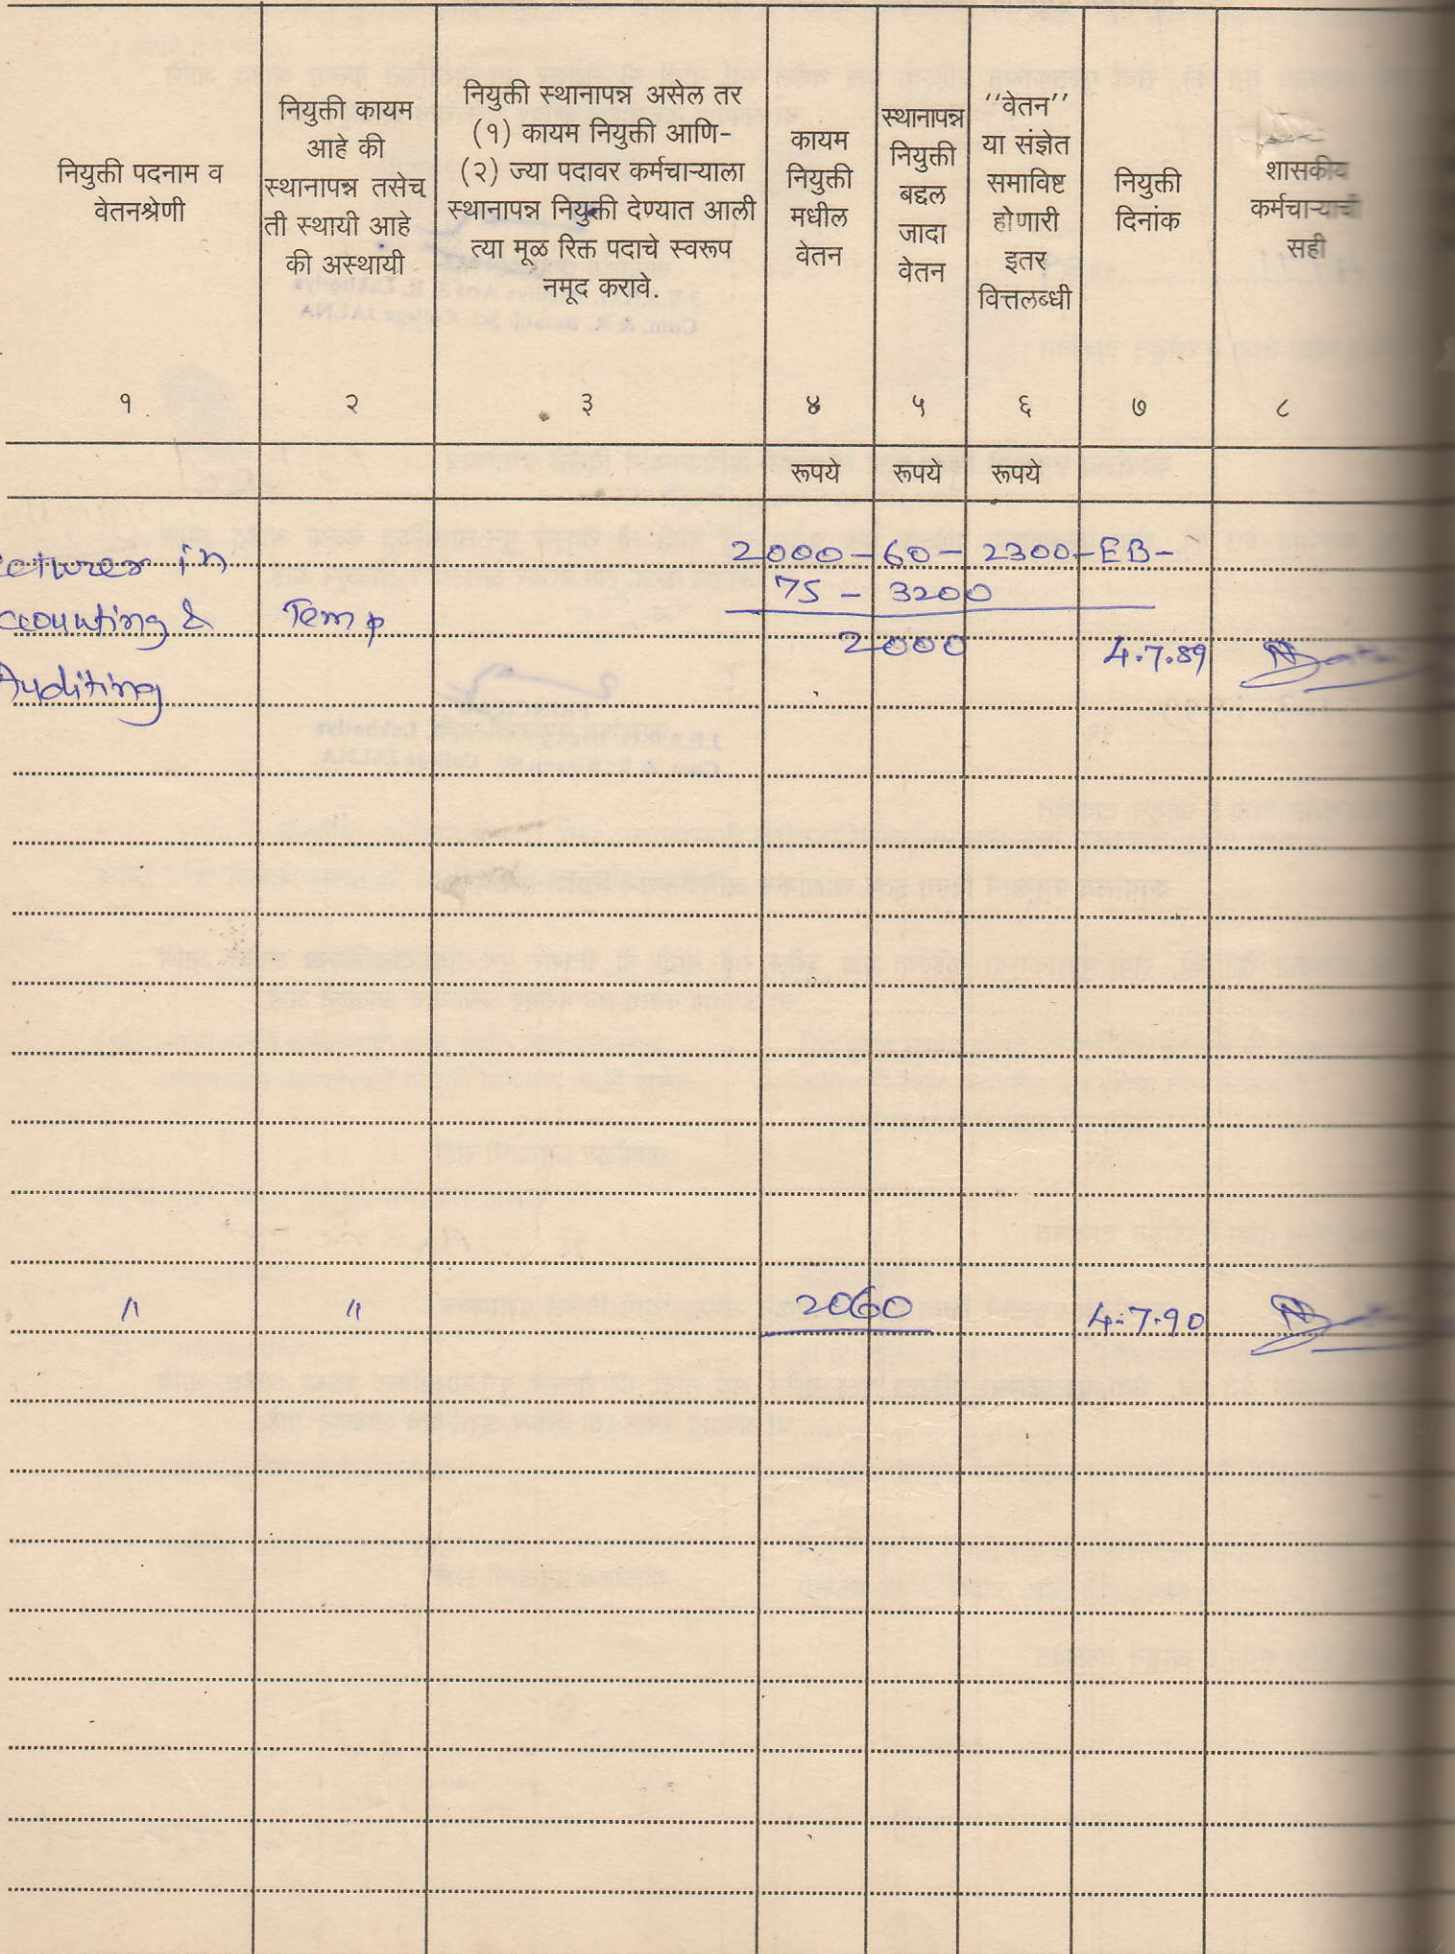 नियुक्ती पदनाम व
वेतनश्रेणी
नियुक्ती कायम
आहे की
स्थानापन्न तसेच
ती स्थायी आहे
की अस्थायी
नियुक्ती स्थानापन्न असेल तर
(१) कायम नियुक्ती आणि-
(२) ज्या पदावर कर्मचाऱ्याला
स्थानापन्न नियुक्ती देण्यात आली
त्या मूळ रिक्त पदाचे स्वरूप
नमूद करावे.
कायम
नियुक्ती
मधील
वेतन
स्थानापन्न
नियुक्ती
बद्दल
जादा
वेतन
''वेतन''
या संज्ञेत
समाविष्ट
होणारी
इतर
वित्तलब्धी
नियुक्ती
दिनांक
शासकीय
कर्मचाऱ्याची
सही
१ २ ३ ४ ५ ६ ७ ८
रूपये रूपये रूपये
ecturer in 2000-60-2300-EB-
75-3200
ccounting & Temp
2000 4.7.89
Auditing
〃 〃 2060 4.7.90